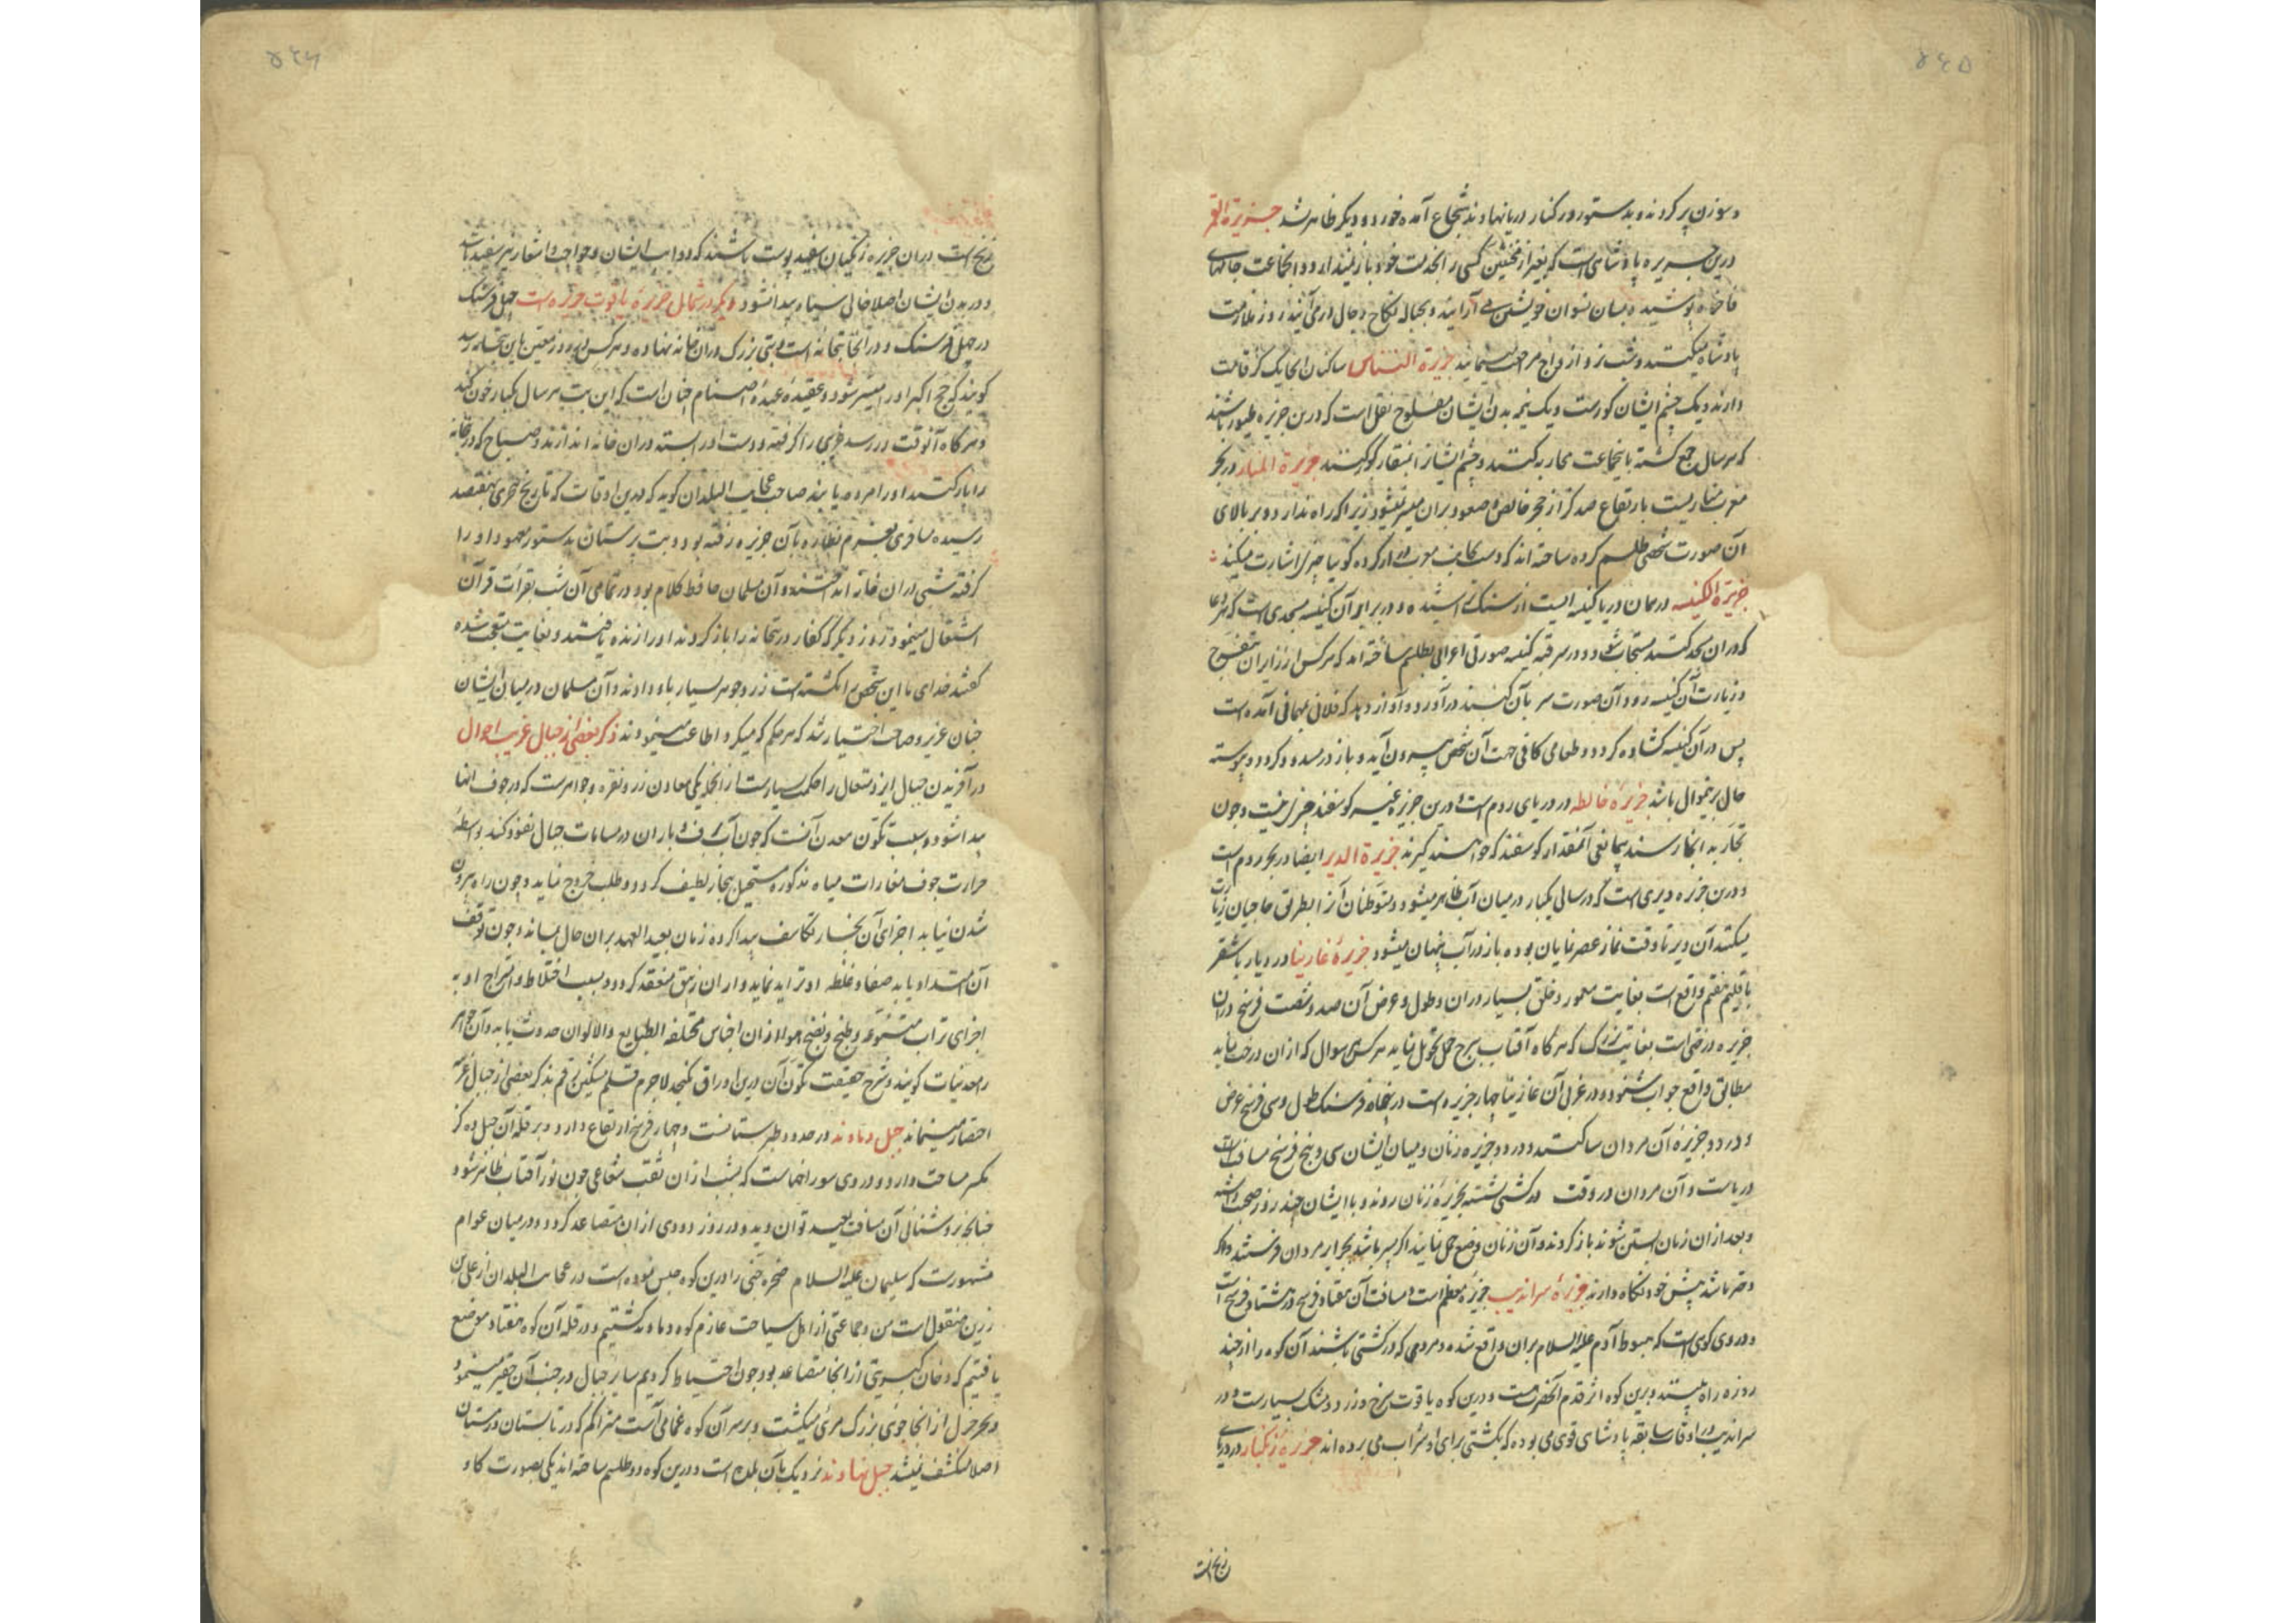 ۵۴۵
و سوزن پر کردند و بدستور در کنار دریا نهادند شجاع آمده خورد و دیگر ظاهر نشد جزیرة القمر
درین جزیره پادشاهی است که بغیر از مخنثین کسی را بخدمت خود باز نمیدارد و آنجماعت جامهای
فاخره پوشیده بسان نسوان خویشتن می آرایند و بحباله نکاح رجال درمی آیند روز ملازمت
پادشاه میکنند و شب نزد ازواج مراجعت مینمایند جزیرة النسناس ساکنان آنجا یک گز قامت
دارند و یک چشم ایشان کورست و یک نیمه بدن ایشان مفلوج نقل است که درین جزیره طیور باشند
که هر سال جمع گشته با اینجماعت محاربه کنند و چشم ایشانرا بمنقار کور کنند جزیرة المنار در بحر
مغرب مناریست بارتفاع صد گز از حجر خالص و صعود بران میسر نمیشود زیرا که راه ندارد و بر بالای
آن صورت شخصی طلسم کرده ساخته اند که دست بجانب مغرب دراز کرده گویا بچیزی اشارت میکند
جزیرة الکنیسه در میان دریا کنیسه ایست از سنگ تراشیده و در برابر آن کنیسه مسجدی است که هر دعا
که دران مسجد کنند مستجاب شود و در سر قبه کنیسه صورتی اعرابی بطلسم ساخته اند که هر کس از زایران بتفرج
و زیارت آن کنیسه رود آن صورت سر بآن کنیسه درآورد و آواز دهد که فلانی مهمانی آمده است
پس در آن کنیسه گشاده گردد و طعامی کافی جهت آن شخص بیرون آید و باز در مسدود گردد و پیوسته
حال برینمنوال باشد جزیرهٔ خالطه در دریای روم است و درین جزیره غیر گوسفند چیزی نیست و چون
تجار به آنجا رسند بیمانعی آنمقدار گوسفند که خواهند گیرند جزیرة الدیر ایضا در بحر روم است
و درین جزیره دیری است که در سالی یکبار در میان آب ظاهر میشود و متوطنان آنرا بطریق حاجیان زیارت
میکنند آن دیر تا وقت نماز عصر نمایان بوده باز در آب پنهان میشود جزیرهٔ غازینا در دیار باشقر
باقلیم هفتم واقع است بغایت معمور و خلق بسیار دران و طول و عرض آن صد و شصت فرسخ دران
جزیره درختی است بغایت بزرگ که هرگاه آفتاب ببرج حمل تحویل نماید هر کسی سوال که ازان درخت نماید
مطابق واقع جواب شنود و در غربی آن غازینا چهار جزیره است در پنجاه فرسنگ طول و سی فرسخ عرض
و در دو جزیرهٔ آن مردان ساکنند و در دو جزیره زنان و میان ایشان سی و پنج فرسخ مسافت
دریاست و آن مردان در وقت در کشتی نشسته بجزیرهٔ زنان روند و با ایشان چند روز صحبت داشته
و بعد ازان زنان آبستن شوند باز گردند و آن زنان وضع حمل نمایند اگر پسر باشد بجزایر مردان فرستند و اگر
دختر باشد پیش خود نگاه دارند جزیرهٔ سراندیب جزیرهٔ معظم است و مسافت آن هفتاد فرسخ در هشتاد فرسخ است
و در وی کوهی است که هبوط آدم علیه السلام بران واقع شده و مردمی که در کشتی باشند آن کوه را از چند
روزه راه بینند و برین کوه اثر قدم آنحضرت هست و درین کوه یاقوت سرخ و زرد و مشک بسیارست و در
سراندیب در اوقات سابقه پادشاهی قوی می بوده که بکشتی برای او شراب می برده اند جزیرهٔ زنگبار در دریای
زنج است
۵۴۶
زنج است دران جزیره زنگیان سفید پوست باشند که دواب ایشان و حواجب و اشعار نیز سفید باشد
و در بدن ایشان اصلا خالی سیاه پیدا نشود و دیگر در شمال جزیرهٔ یاقوت جزیره است چهل فرسنگ
در چهل فرسنگ و در آنجا بتخانه است و بتی بزرگ دران خانه نهاده و هر کس در روز معین باین بتخانه رسد
گویند که حج اکبر او را میسر شود و عقیدهٔ عبدهٔ اصنام چنان است که این بت هر سال یکبار خون کند
و هرگاه آنوقت در رسد غریبی را گرفته و دست او را بسته دران خانه اندازند و صباح که در بتخانه
را باز کنند او را مرده یابند صاحب عجایب البلدان گوید که درین اوقات که تاریخ هجری بهفتصد
رسیده مسافری بعزم نظاره بآن جزیره رفته بود و بت پرستان بدستور معهود او را
گرفته شبی دران خانه انداختند و آن مسلمان حافظ کلام بود در تمامی آن شب بقرأت قرآن
اشتغال مینمود و روز دیگر که کفار در بتخانه را باز کردند او را زنده یافتند و بغایت متعجب شده
گفتند خدای ما این شخص را نکشته است زر و جوهر بسیار باو دادند و آن مسلمان در میان ایشان
چنان عزیز و صاحب اختیار شد که هر حکم که میکرد اطاعت مینمودند ذکر بعضی از جبال غریب احوال
در آفریدن جبال ایزد متعال را حکمت بسیارست از آنجمله یکی معادن زر و نقره و جواهرست که در جوف آنها
پیدا شود و سبب تکون معدن آنست که چون آب برف و باران در مسامات جبال نفوذ کند بواسطهٔ
حرارت جوف مغارات میاه مذکوره مستحیل ببخار لطیف گردد و طلب خروج نماید و چون راه بیرون
شدن نیابد اجزای آن بخار تکاثف پیدا کرده زمان بعید العهد بران حال بماند و چون توقف
آن امتداد یابد صفا و غلظه او تزاید نماید و ازان زیبق منعقد گردد و بسبب اختلاط و امتزاج او به
اجزای تراب متنوعه و طبخ و نضج هوا ازان اجناس مختلفه الطبایع و الالوان حدوث یابد و آن جواهر
را معدنیات گویند و شرح حقیقت تکون آن درین اوراق نگنجد لاجرم قلم مشکین رقم بذکر بعضی از جبال غریبه
اختصار مینماید جبل دماوند در حدود طبرستانست و چهار فرسخ ارتفاع دارد و بر قلهٔ آن جبل ده گز
مکسر مساحت دارد و در وی سوراخهاست که بشب ازان ثقب شعاعی چون نور آفتاب ظاهر شود
چنانچه بروشنائی آن مسافت بعید توان دید و در روز دودی ازان متصاعد گردد و در میان عوام
مشهورست که سلیمان علیه السلام صخرهٔ جنی را درین کوه حبس نموده است در عجایب البلدان از علی بن
زرین منقول است من و جماعتی از اهل سیاحت عازم کوه دماوند گشتیم و در قلهٔ آن کوه هفتاد موضع
یافتیم که دخان کبریتی از آنجا متصاعد بود چون احتیاط کردیم سایر جبال در جنب آن حقیر مینمود
و بحر خزر از آنجا جوئی بزرگ مرئی میگشت و بر سر آن کوه غمامی است متراکم که در تابستان و زمستان
اصلا منکشف نمیشد جبل نهاوند نزدیک بآن بلده است و درین کوه دو طلسم ساخته اند یکی بصورت گاو